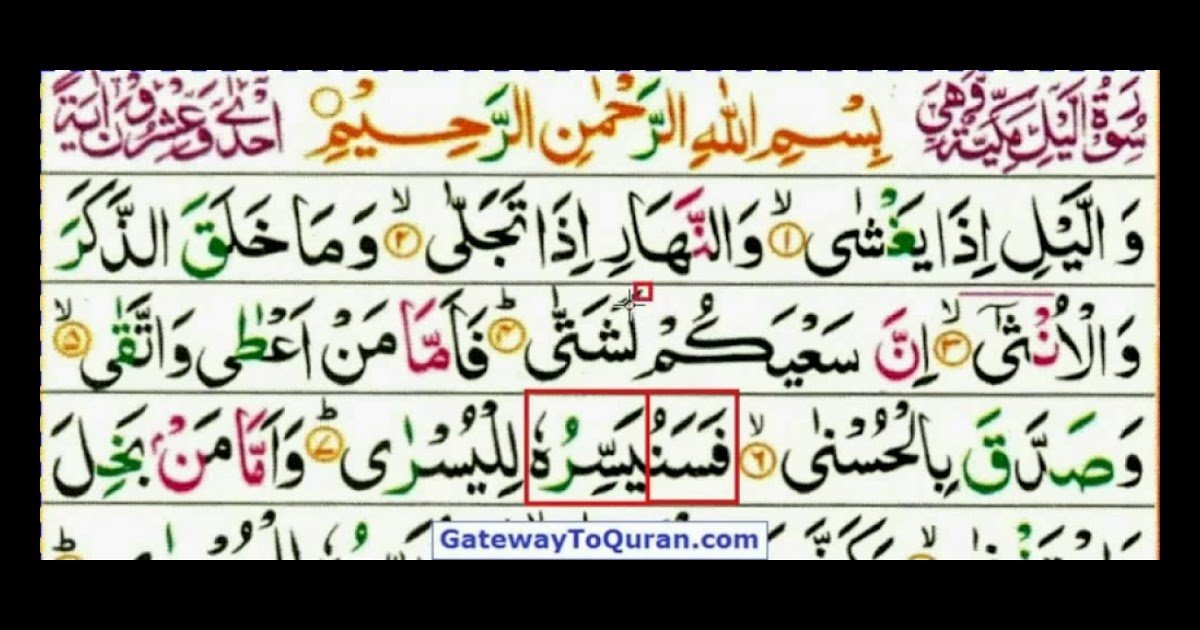 سُوْرَةُ الَّيْلِ مَكِّيَّةٌ وَّهِىَ بِسْمِ اللّٰهِ الرَّحْمٰنِ الرَّحِيْمِ اِحْدٰى وَّعِشْرُوْنَ اٰيَةً
وَ الَّيْلِ اِذَا يَغْشٰى ۙ﴿۱﴾ وَالنَّهَارِ اِذَا تَجَلّٰى ۙ﴿۲﴾ وَ مَا خَلَقَ الذَّكَرَ
وَالْاُنْثٰٓى ﴿۳﴾ اِنَّ سَعْيَكُمْ لَشَتّٰى ؕ﴿۴﴾ فَاَمَّا مَنْ اَعْطٰى وَاتَّقٰى ۙ﴿۵﴾
وَصَدَّقَ بِالْحُسْنٰى ۙ﴿۶﴾ فَسَنُيَسِّرُهٗ لِلْيُسْرٰى ؕ﴿۷﴾ وَاَمَّا مَنْۢ بَخِلَ
GatewayToQuran.com